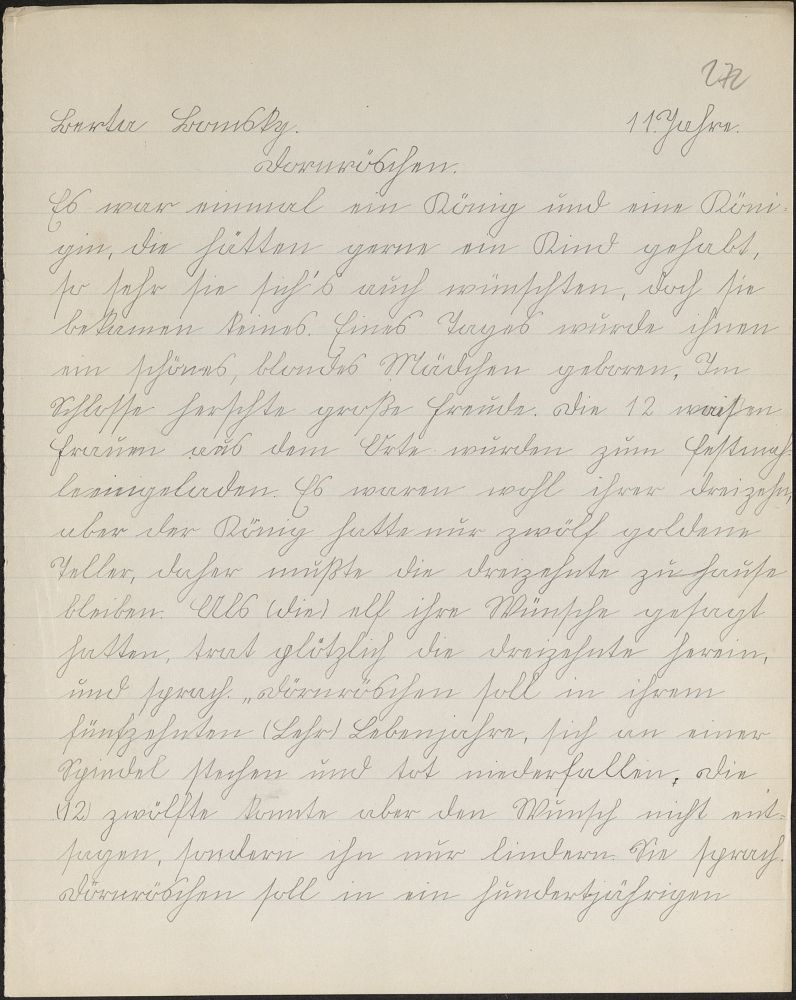 272
Berta Bomsky. 11. Jahre.
Dornröschen.
Es war einmal ein König und eine Köni-
gin, die hätten gerne ein Kind gehabt,
so sehr sie sich's auch wünschten, doch sie
bekamen keines. Eines Tages wurde ihnen
ein schönes, blondes Mädchen geboren. Im
Schlosse herschte große Freude. Die 12 weisen
Frauen aus dem Orte wurden zum Festmah-
le eingeladen. Es waren wohl ihrer dreizehn,
aber der König hatte nur zwölf goldene
Teller, daher mußte die dreizehnte zu hause
bleiben. Als (die) elf ihre Wünsche gesagt
hatten, trat plötzlich die dreizehnte herein,
und sprach. „Dörnröschen soll in ihrem
fünfzehnten (Lehr) Lebenjahre, sich an einer
Spindel stechen und tot niederfallen. Die
(12) zwölfte konnte aber den Wunsch nicht ent-
sagen, sondern ihn nur lindern. Sie sprach.
Dörnröschen soll in ein hundertjährigen